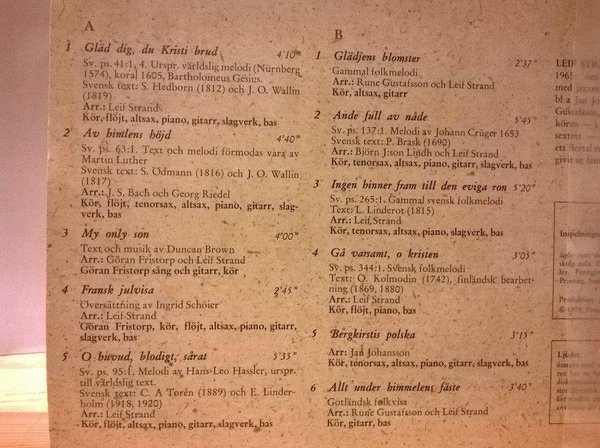 A
1 Gläd dig, du Kristi brud 4'10"
Sv. ps. 41:1, 4. Urspr. världslig melodi (Nürnberg
1574), koral 1605, Bartholomeus Gesius.
Svensk text: S. Hedborn (1812) och J. O. Wallin
(1819)
Arr.: Leif Strand
Kör, flöjt, altsax, piano, gitarr, slagverk, bas
2 Av himlens höjd 4'40"
Sv. ps. 63:1. Text och melodi förmodas vara av
Martin Luther
Svensk text: S. Ödmann (1816) och J. O. Wallin
(1817)
Arr.: J. S. Bach och Georg Riedel
Kör, flöjt, tenorsax, altsax, piano, gitarr, slag-
verk, bas
3 My only son 4'00"
Text och musik av Duncan Brown
Arr.: Göran Fristorp och Leif Strand
Göran Fristorp sång och gitarr, kör
4 Fransk julvisa 2'45"
Översättning av Ingrid Schöier
Arr.: Leif Strand
Göran Fristorp, kör, flöjt, altsax, piano, gitarr,
slagverk, bas
5 O huvud, blodigt, sårat 5'35"
Sv. ps. 95:1. Melodi av Hans-Leo Hassler, urspr.
till världslig text.
Svensk text: C. A Torén (1889) och E. Linder-
holm (1918, 1920)
Arr.: Leif Strand
Kör, flöjt, altsax, piano, gitarr, slagverk, bas
B
1 Glädjens blomster 2'37"
Gammal folkmelodi
Arr.: Rune Gustafsson och Leif Strand
Kör, altsax, gitarr
2 Ande full av nåde 5'45"
Sv. ps. 137:1. Melodi av Johann Crüger 1653
Svensk text: P. Brask (1690)
Arr.: Björn J:son Lindh och Leif Strand
Kör, tenorsax, altsax, piano, gitarr, slagverk, bas
3 Ingen hinner fram till den eviga ron 5'20"
Sv. ps. 265:1. Gammal svensk folkmelodi
Text: L. Linderot (1815)
Arr.: Leif Strand
Kör, tenorsax, altsax, piano, gitarr, slagverk, bas
4 Gå varsamt, o kristen 3'05"
Sv. ps. 344:1. Svensk folkmelodi
Text: O. Kolmodin (1742), finländsk bearbet-
ning (1869, 1880)
Arr.: Leif Strand
Kör, flöjt, piano, bas
5 Bergkirstis polska 3'15"
Arr: Jan Johansson
Kör, tenorsax, altsax, piano, gitarr, slagverk, bas
6 Allt under himmelens fäste 3'40"
Gotländsk folkvisa
Arr.: Rune Gustafsson och Leif Strand
Kör, gitarr, bas
LEIF
med
bl a Jan
Gustafsson,
kören
sextett
Produktion